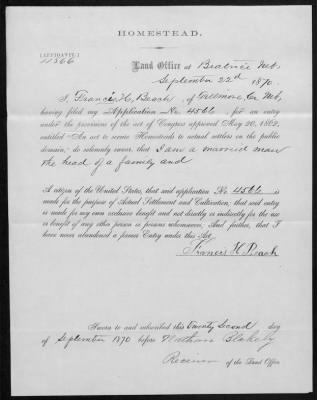 HOMESTEAD.
[AFFIDAVIT.]
11366
Land Office at Beatrice Neb.
September 22d 1870.
I, Francis H. Beach, of Fillmore Co Neb,
having filed my Application No. 4566, for an entry
under the provisions of the act of Congress approved May 20, 1862,
entitled "An act to secure Homesteads to actual settlers on the public
domain," do solemnly swear, that I am a married man
the head of a family and
A citizen of the United States, that said application No. 4566 is
made for the purpose of Actual Settlement and Cultivation; that said entry
is made for my own exclusive benefit and not directly or indirectly for the use
or benefit of any other person or persons whomsoever; And further, that I
have never abandoned a former Entry under this Act.
Francis H. Beach
Sworn to and subscribed this Twenty Second day
of September 1870 before Nathan Blakely
Receiver of the Land Office.